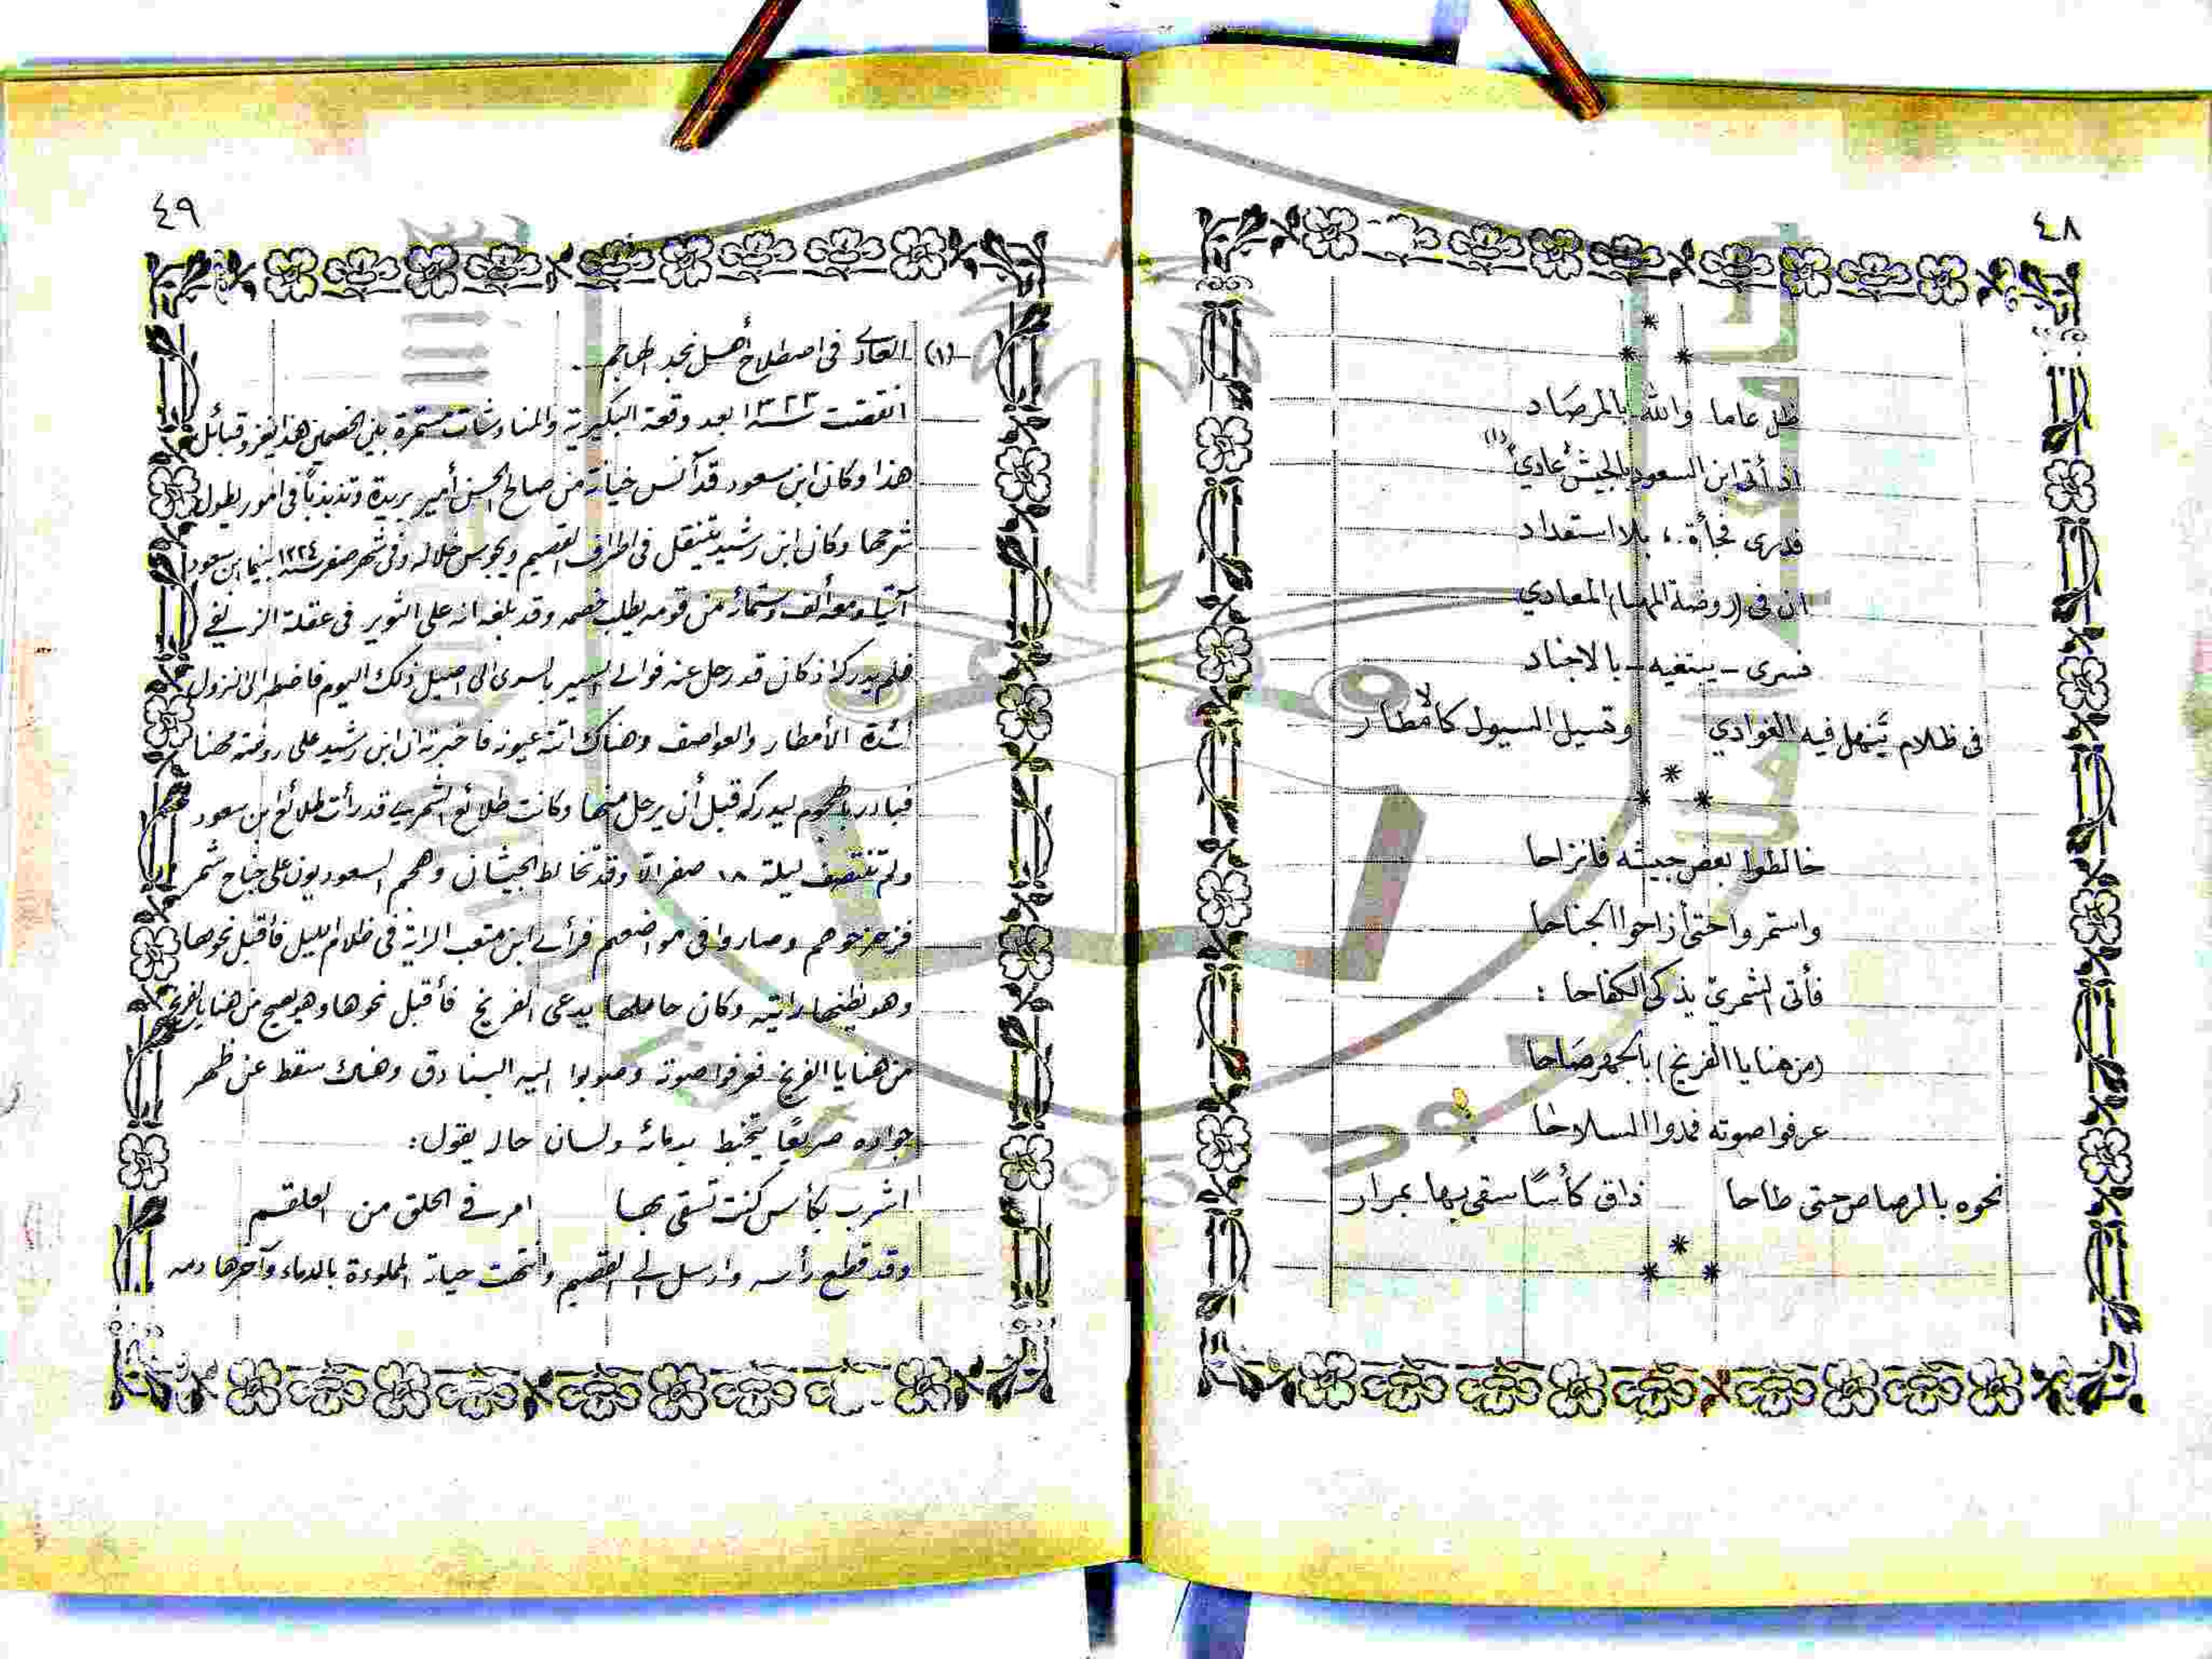 ٤٨
*
* *
ظل عاما والله بالمرصاد
إذ أتى ابن السعود بالجيش "عادي" (١)
فدرى فجأة، بلا استعداد
ان في (روضة المهنا) المعادي
فسرى - يبتغيه - بالاجناد
في ظلام تنهل فيه الغوادي وتسيل السيول كالأمطار
*
* *
خالطوا بعض جيشه فانزاحا
واستمروا حتى أزاحوا الجناحا
فأتى الشمري يذكي الكفاحا :
(من هنا يا الفريخ) بالجهر صاحا
عرفوا صوته فمدوا السلاحا
نحوه بالرصاص حتى طاحا ذاق كأسًا سقى بها بمرار
*
* *
٤٩
(١) العادي في اصطلاح أهل نجد الهاجم .
انقضت سنة ١٣٢٣ بعد وقعة البكيرية والمناوشات مستمرة بين الخصمين هذا يغزو قبائل
هذا وكان ابن سعود قد آنس خيانة من صالح الحسن أمير بريدة وتذبذبًا في امور يطول
شرحها وكان ابن رشيد يتنقل في اطراف القصيم ويجوس خلاله وفي شهر صفر سنة ١٣٢٤ بينما ابن سعود
آتيا ومعه ألف وستمائة من قومه يطلب خصمه وقد بلغه انه على الثوير في عقلة الزلفي
فلم يدركه اذ كان قد رحل عنه فوالى السير بالسرى الى اصيل ذلك اليوم فاضطر الى النزول
لشدة الأمطار والعواصف وهناك اتته عيونه فاخبرته ان ابن رشيد على روضة مهنا
فبادر بالهجوم ليدركه قبل أن يرحل منها وكانت طلائع الشمري قد رأت طلائع ابن سعود
ولم تنتصف ليلة ١٨ صفر الا وقد تخالط الجيشان وهجم السعوديون على جناح شمر
فزحزحوهم وصاروا في مواضعهم فرأى ابن متعب الراية في ظلام الليل فأقبل نحوها
وهو يظنها رايته وكان حاملها يدعى الفريخ فأقبل نحوها وهو يصيح من هنا يا الفريخ
من هنا يا الفريخ فعرفوا صوته وصوبوا اليه البنادق وهناك سقط عن ظهر
جواده صريعًا يتخبط بدمائه ولسان حاله يقول:
اشرب بكأس كنت تسقي بها امر في الحلق من العلقم
وقد قطع رأسه وارسل الى القصيم وانتهت حياته المملوءة بالدماء وآخرها دمه